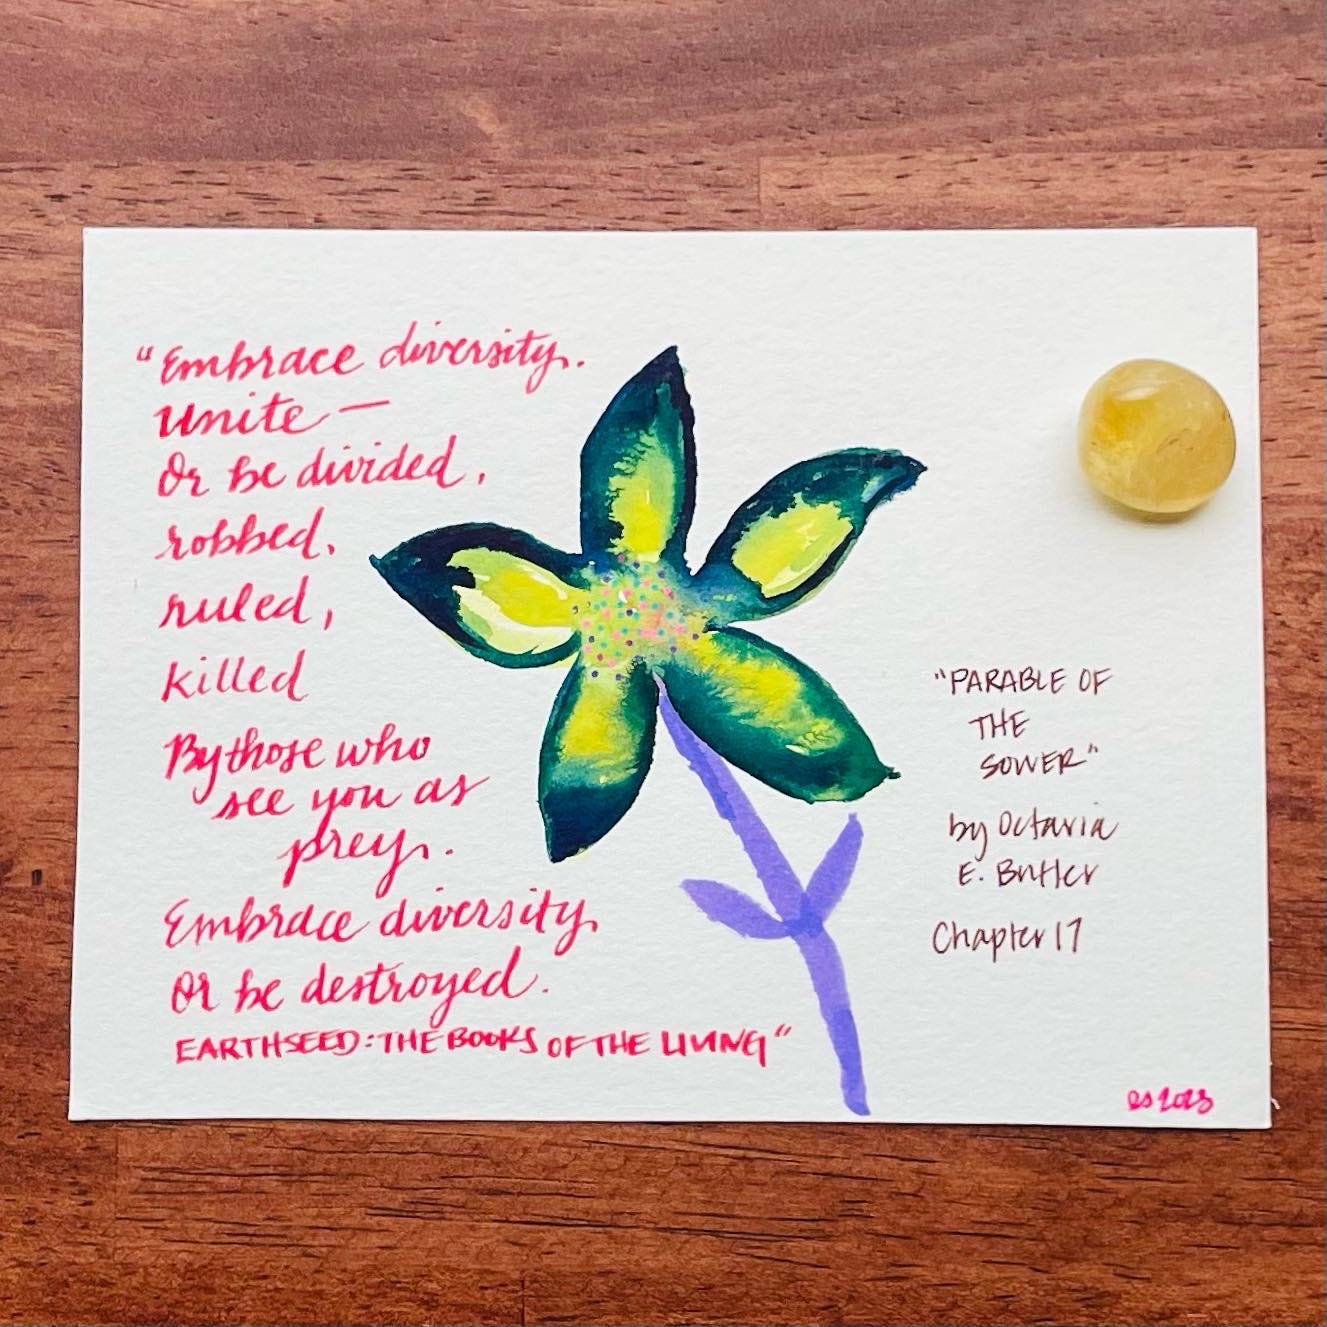 "Embrace diversity.
Unite—
Or be divided,
robbed,
ruled,
killed
By those who
see you as
prey.
Embrace diversity
Or be destroyed.
EARTHSEED: THE BOOKS OF THE LIVING"
"PARABLE OF
THE
SOWER"
by Octavia
E. Butler
Chapter 17
es 2023